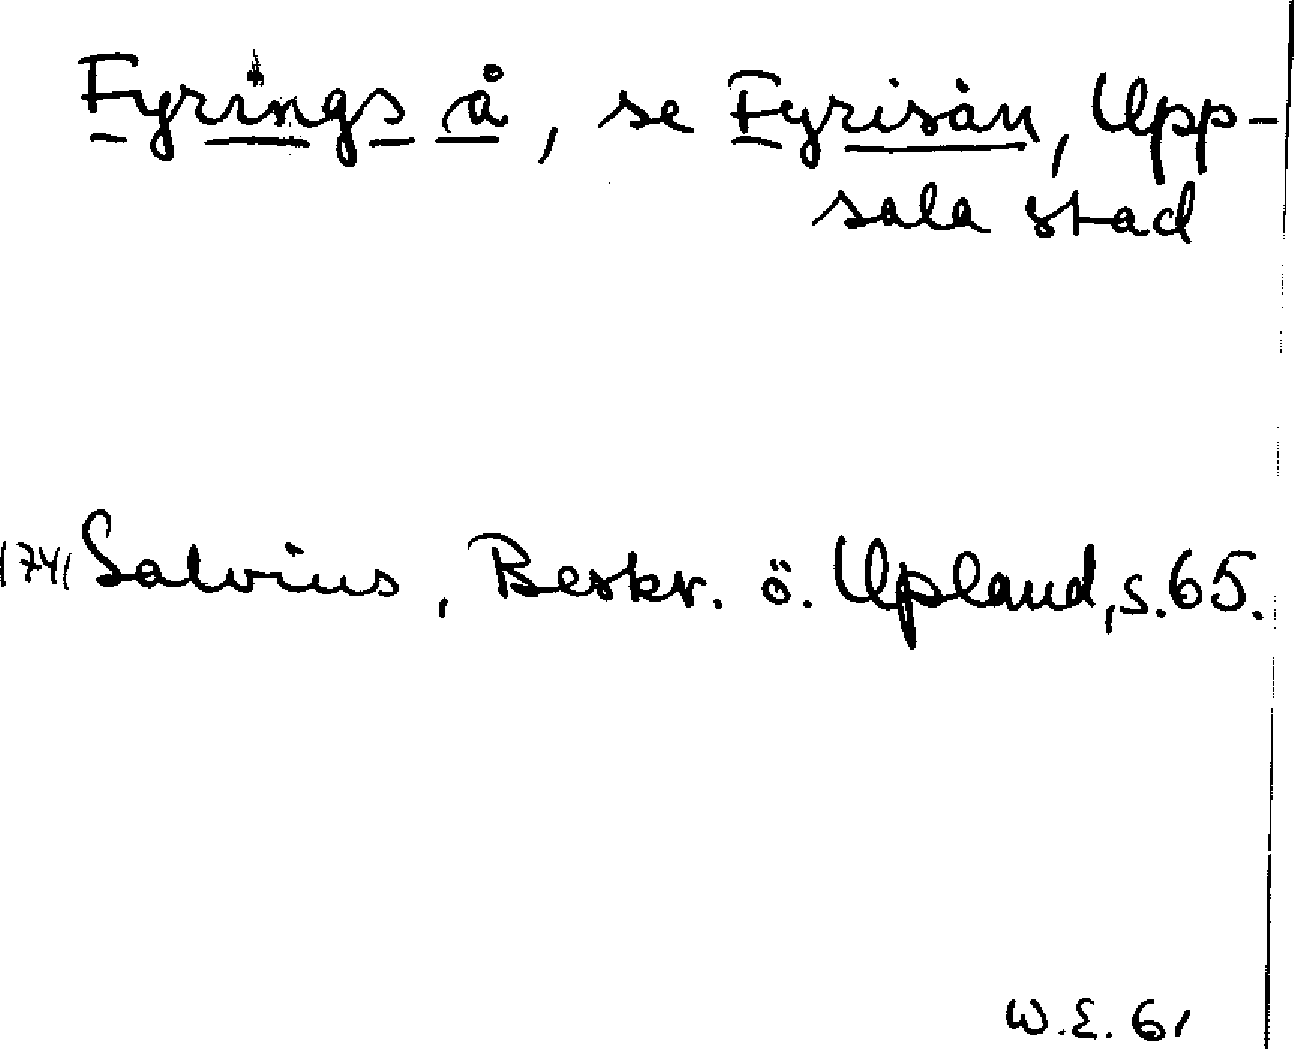 Fyrings å, se Fyrisån, Upp-
sala stad
1741 Salvius, Beskr. ö. Upland, s. 65.
W.E. 61